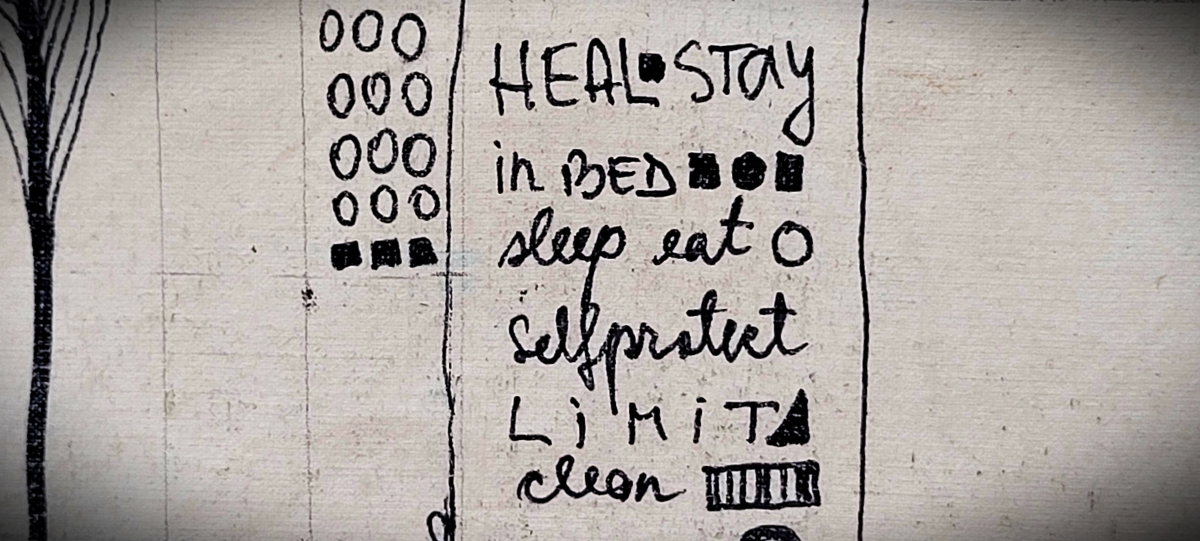 HEAL▪STay
in BED ■●■
sleep eat O
selfprotect
LiMiT◢
clean